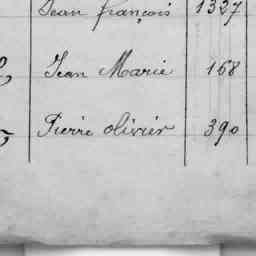 Jean françois 1327
Jean Marie 168
Pierre olivier 390